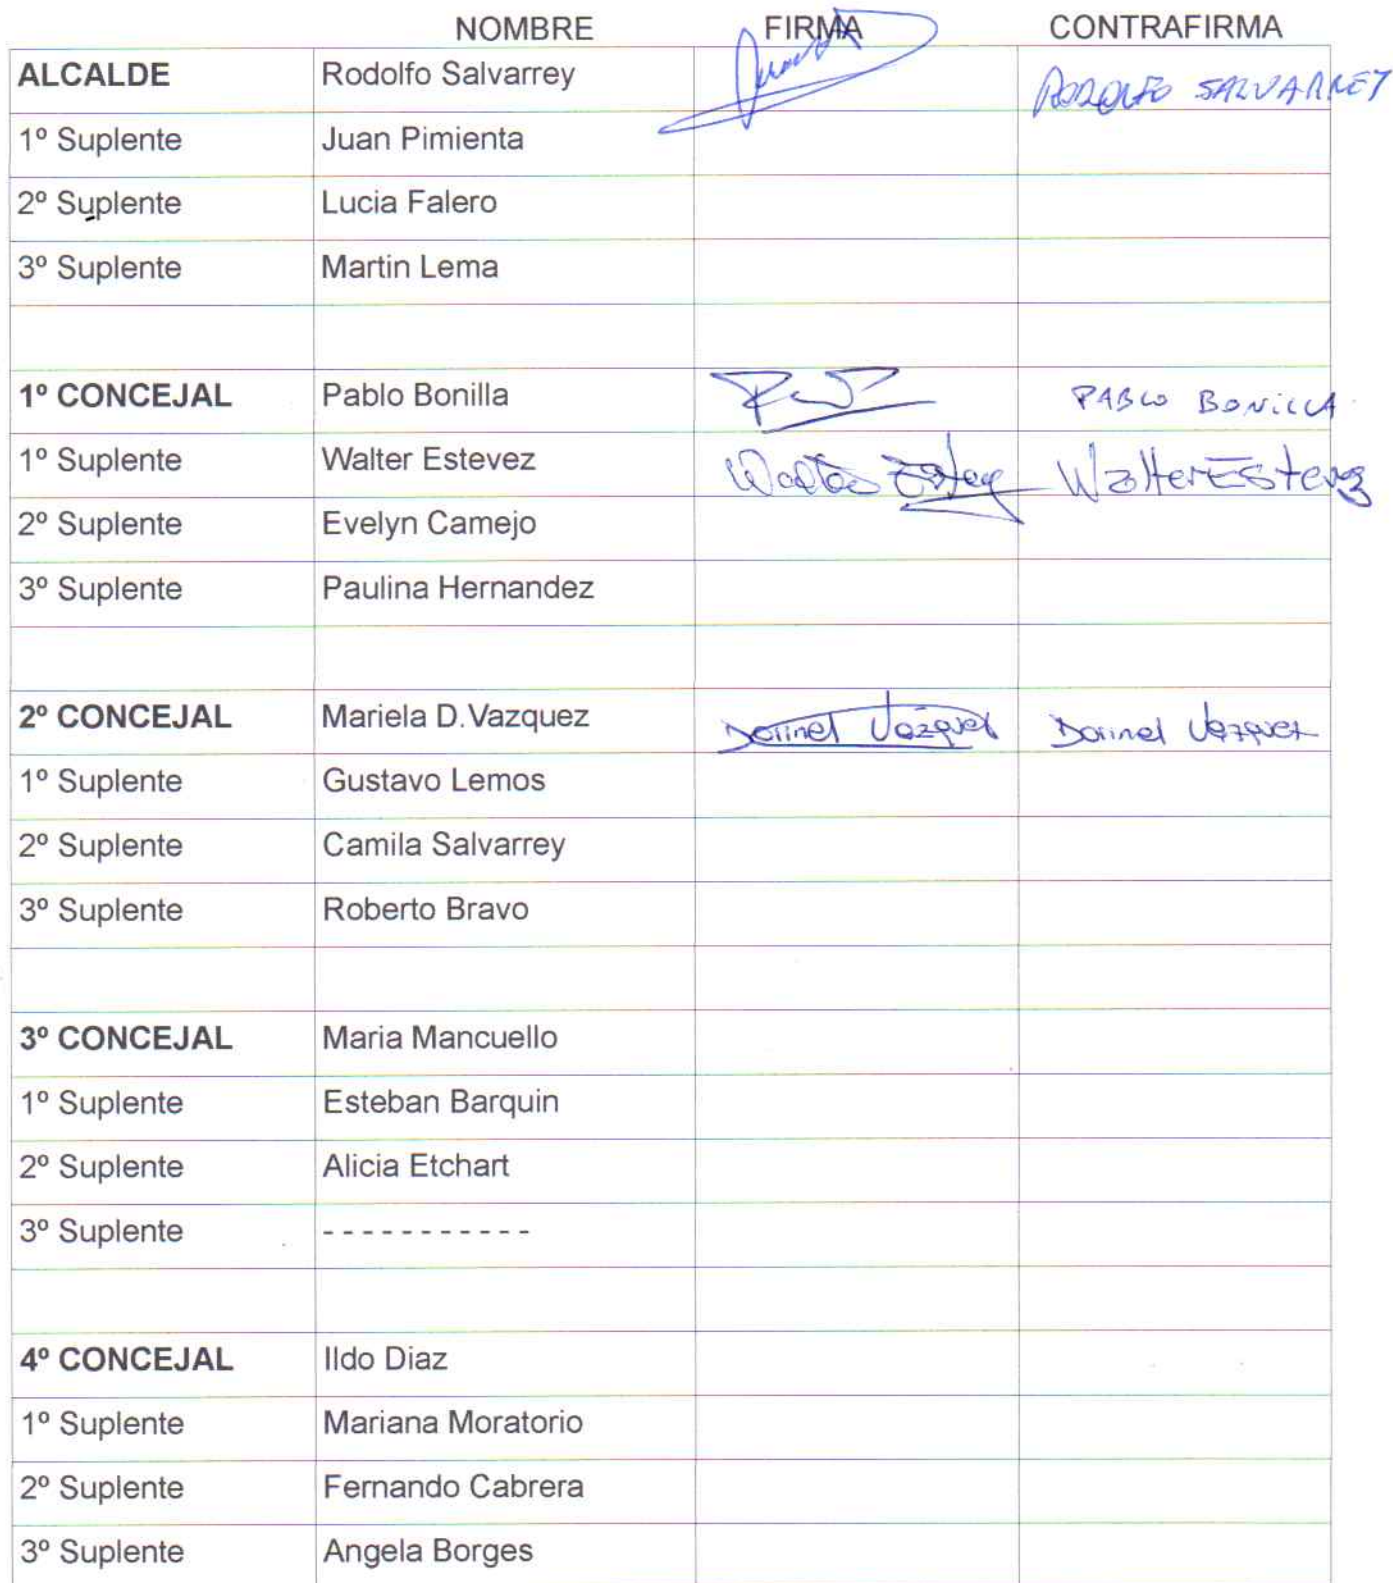 NOMBRE FIRMA CONTRAFIRMA
ALCALDE Rodolfo Salvarrey RODOLFO SALVARREY
1º Suplente Juan Pimienta
2º Suplente Lucia Falero
3º Suplente Martin Lema
1º CONCEJAL Pablo Bonilla PABLO BONILLA
1º Suplente Walter Estevez Walter Estevez Walter Estevez
2º Suplente Evelyn Camejo
3º Suplente Paulina Hernandez
2º CONCEJAL Mariela D.Vazquez Dorinel Vazquez Dorinel Vazquez
1º Suplente Gustavo Lemos
2º Suplente Camila Salvarrey
3º Suplente Roberto Bravo
3º CONCEJAL Maria Mancuello
1º Suplente Esteban Barquin
2º Suplente Alicia Etchart
3º Suplente - - - - - - - - - - -
4º CONCEJAL Ildo Diaz
1º Suplente Mariana Moratorio
2º Suplente Fernando Cabrera
3º Suplente Angela Borges